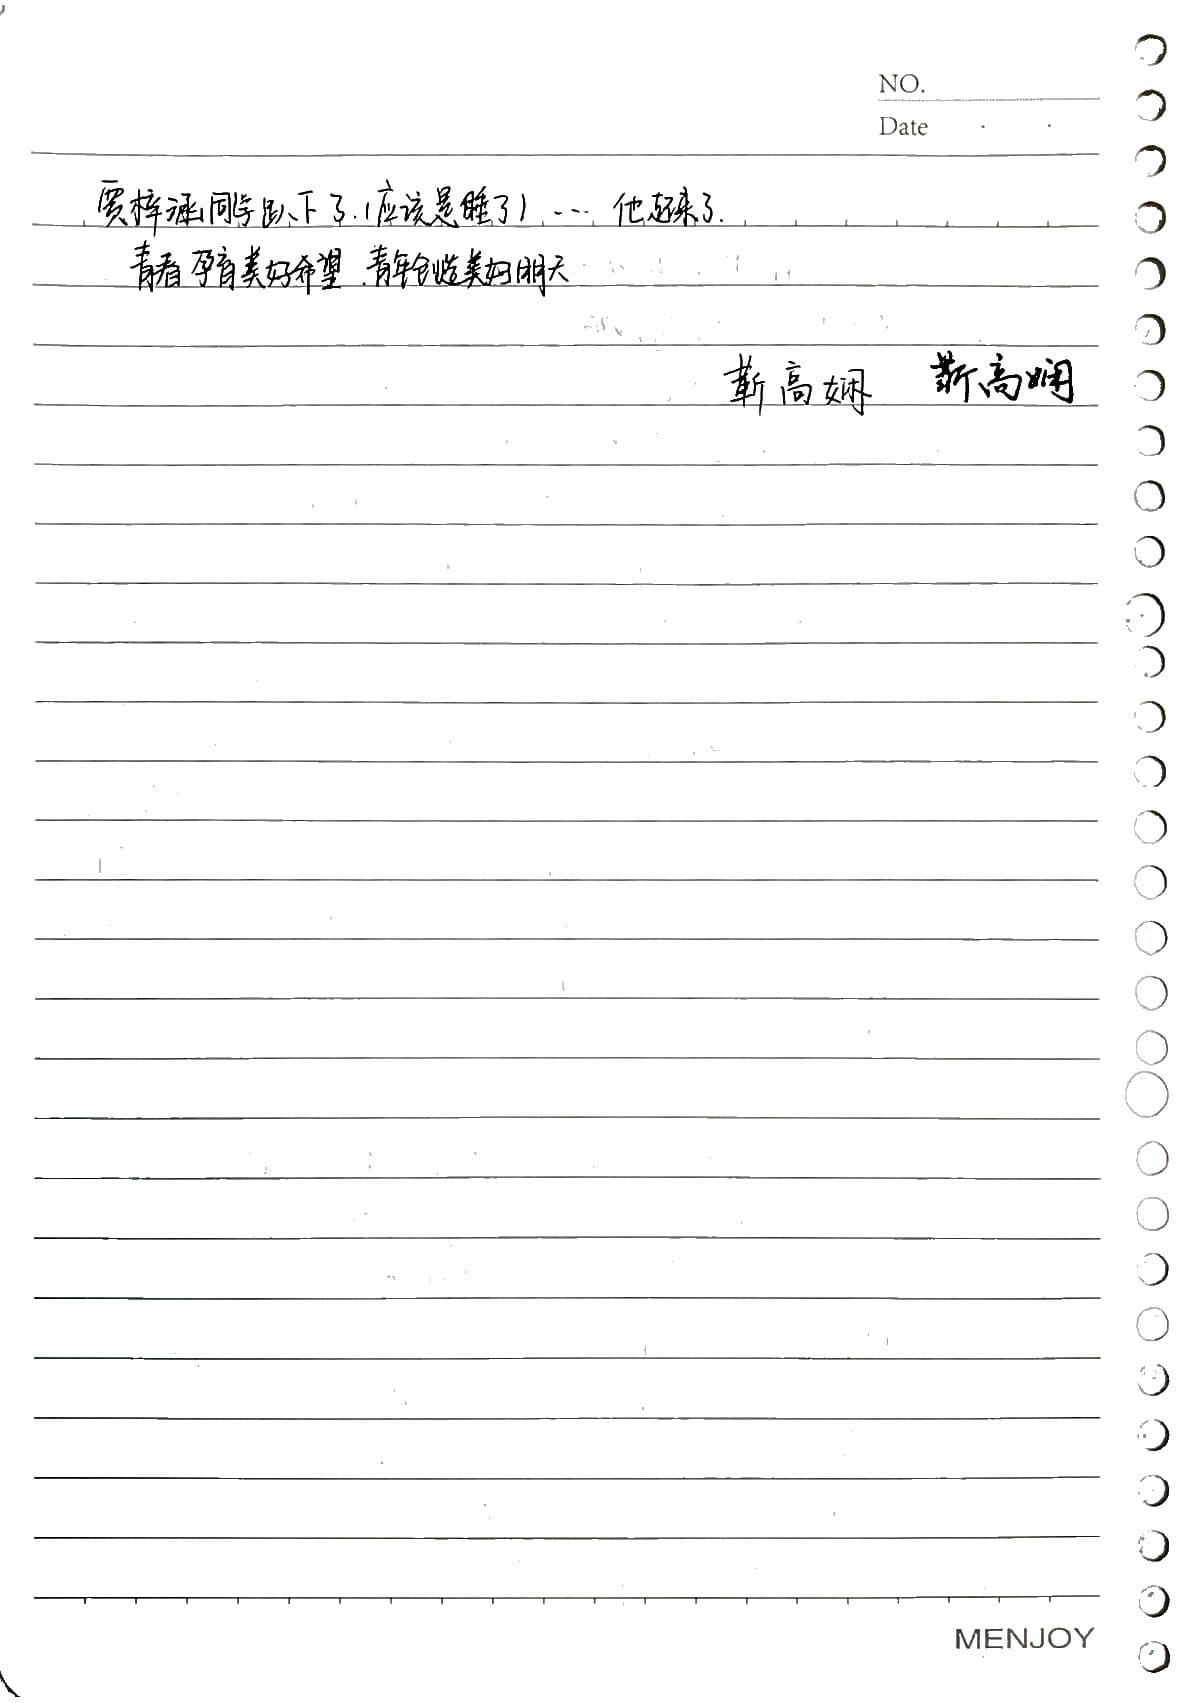 NO.
Date
贾梓涵同学趴下了.(应该是睡了) ... 他起来了.
青春孕育美好希望.青年创造美好明天
靳高娴 靳高娴
MENJOY